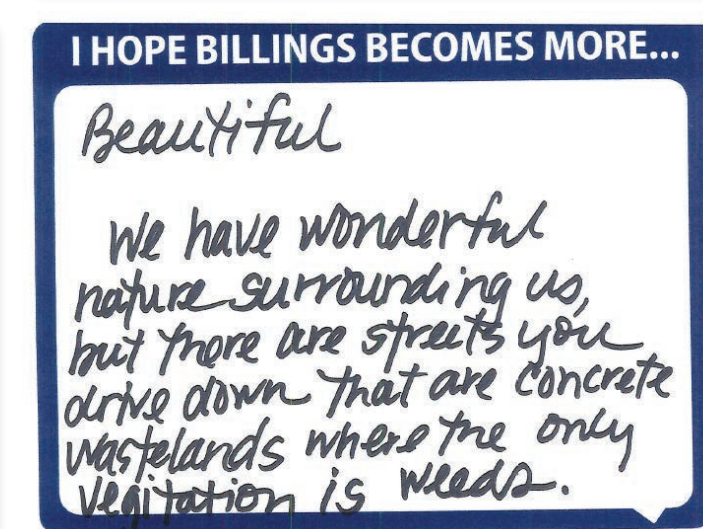 I HOPE BILLINGS BECOMES MORE...
Beautiful
We have wonderful
nature surrounding us,
but there are streets you
drive down that are concrete
wastelands where the only
vegitation is weeds.